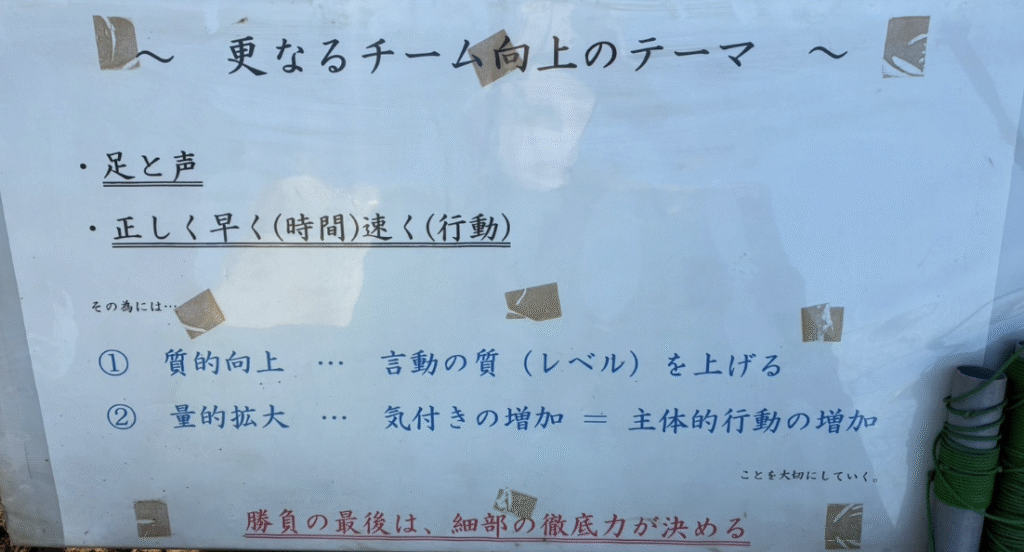 ～ 更なるチーム向上のテーマ ～
・足と声
・正しく早く(時間)速く(行動)
その為には…
① 質的向上 … 言動の質（レベル）を上げる
② 量的拡大 … 気付きの増加 ＝ 主体的行動の増加
ことを大切にしていく。
勝負の最後は、細部の徹底力が決める